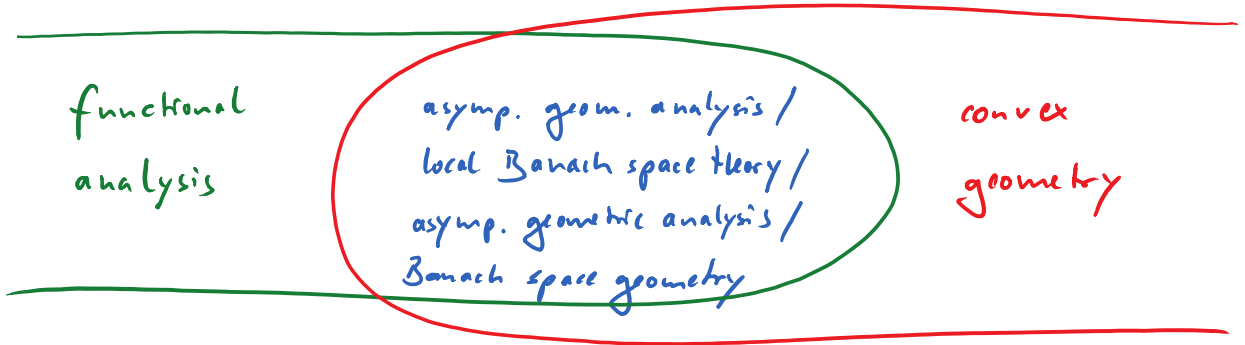 functional
analysis
asymp. geom. analysis /
local Banach space theory /
asymp. geometric analysis /
Banach space geometry
convex
geometry